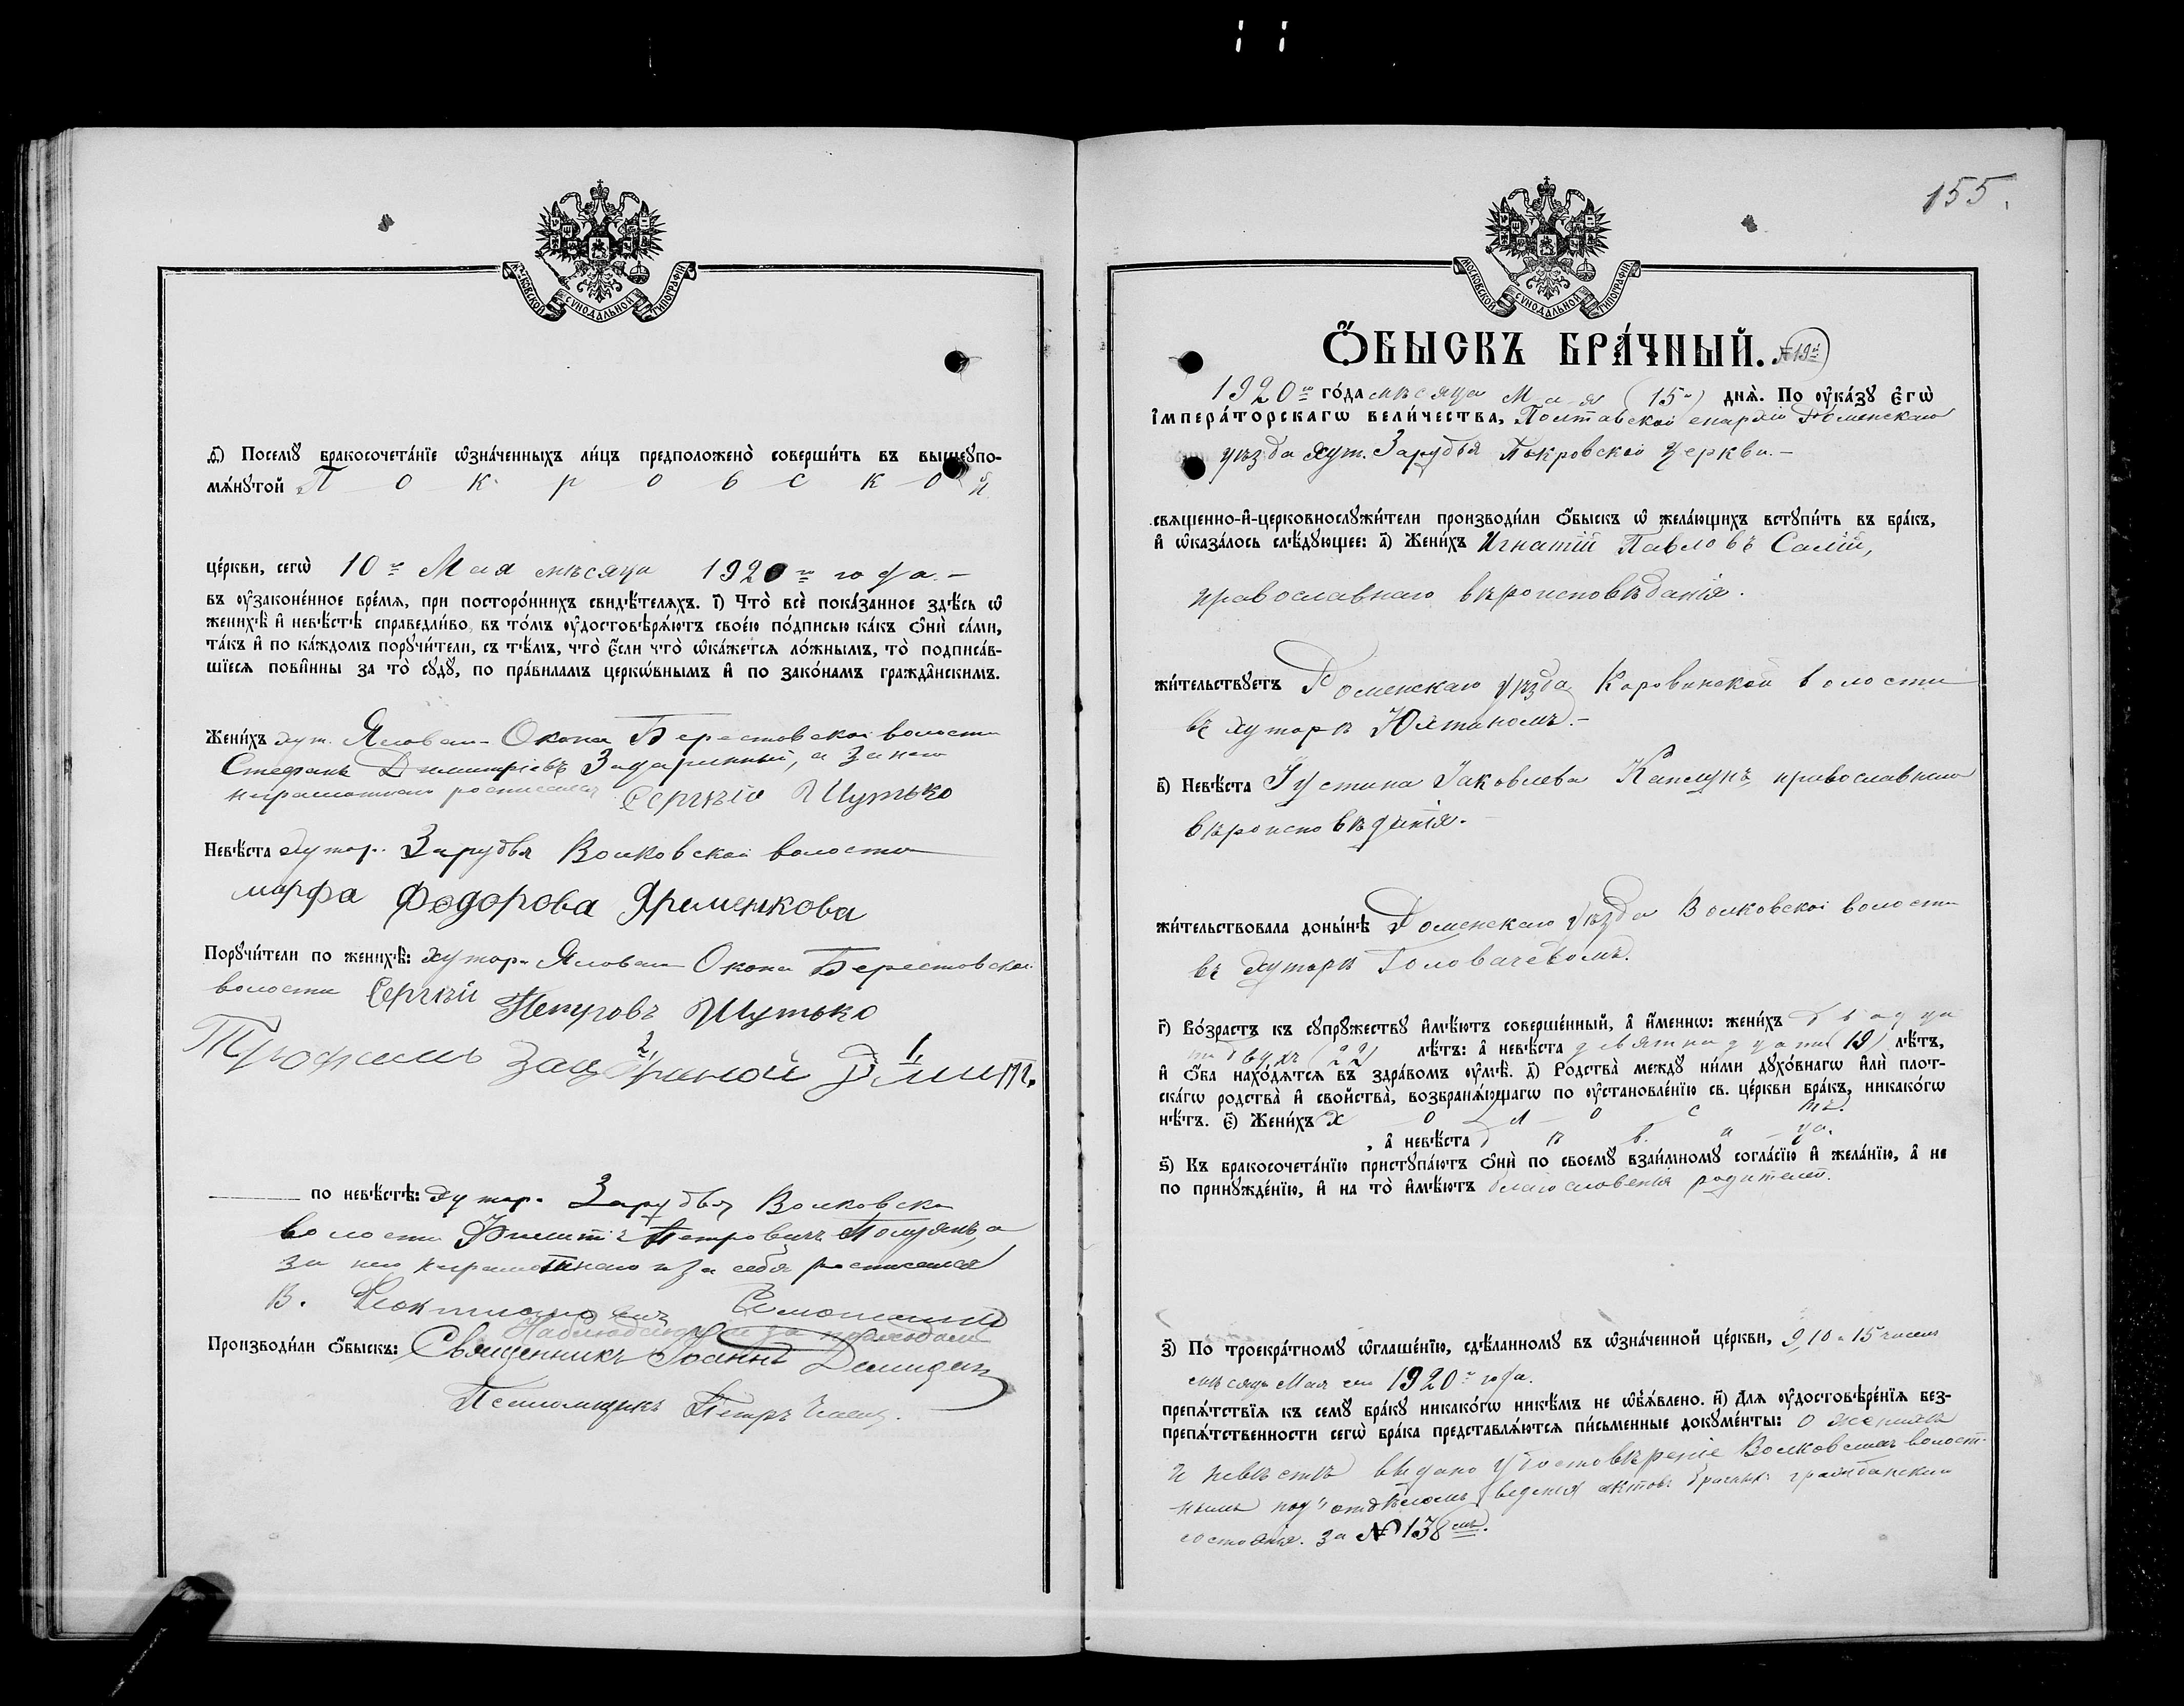 МОСКОВСКОЙ СѴНОДАЛЬНОЙ ТИПОГРАФІИ
д҃) Посемꙋ̀ бракосочета́нїе ѡ҆зна́ченныхъ ли́цъ предположено̀ соверши́ть въ вышеꙋпо-
мѧ́нꙋтой П о к р о в с к о й
це́ркви, сегѡ̀ 10го Мая мѣсяца 1920го года.—
въ ᲂу҆зако́ненное вре́мѧ, при посторо́ннихъ свидѣ́телѧхъ. і҃) Что̀ всѐ пока́занное здѣ́сь ѡ҆
женихѣ̀ и҆ невѣ́стѣ справедли́во, въ то́мъ ᲂу҆достовѣрѧ́ютъ свое́ю по́дписью ка́къ ѻ҆нѝ са́ми,
та́къ и҆ по ка́ждомъ порꙋчи́тели, съ тѣ́мъ, что̀ є҆́сли что̀ ѡ҆ка́жетсѧ ло́жнымъ, то̀ подписа́в-
шїесѧ пови́нны за то̀ сꙋдꙋ̀, по пра́виламъ церкѡ́внымъ и҆ по зако́намъ гражда́нскимъ.
Жени́хъ хут. Ялован-Окопа Берестовской волости
Стефанъ Димитріевъ Зацаринный, а за него
неграмотнаго росписался Сергѣй Шутько
Невѣ́ста хутор. Зарудья Волковской волости
марфа Федорова Яременкова
Порꙋчи́тели по женихѣ̀: хутор. Ялован Окопа Берестовской
волости Сергѣй Петровъ Шутько
Трофимъ 2 1
по невѣ́стѣ: хутор. Зарудья Волковской
волости Филиппъ Петровичъ а
за него неграмотнаго и за себя росписался
В.
Производи́ли ѻ҆́быскъ: Священникъ Іоаннъ Демидов
Псаломщикъ Петръ
155.
МОСКОВСКОЙ СѴНОДАЛЬНОЙ ТИПОГРАФІИ
Ѻ҆́БЫСКЪ БРА́ЧНЫЙ. №19й
1920го го́да мѣсяца Мая (15го) днѧ̀. По ᲂу҆ка́зꙋ Є҆гѡ̀
І҆мпера́торскагѡ вели́чества, Полтавской епархіи Роменскаго
уѣзда хут. Зарудья Покровской Церкви.—
свѧщенно-и҆-церковнослꙋжи́тели производи́ли ѻ҆́быскъ ѡ҆ жела́ющихъ встꙋпи́ть въ бра́къ,
и҆ ѡ҆каза́лось слѣ́дꙋющее: а҃) Жени́хъ Игнатій Павловъ Салій,
православнаго вѣроисповѣданія.
жи́тельствꙋетъ Роменскаго уѣзда Коровинской волости
въ хуторѣ Юхтаномъ.—
в҃) Невѣ́ста Іустина Іаковлева Каплунъ, православнаго
вѣроисповѣданія.
жи́тельствовала доны́нѣ Роменскаго уѣзда Волковской волости
въ хуторѣ Головачевомъ.
г҃) Во́зрастъ къ сꙋпрꙋ́жествꙋ и҆мѣ́ютъ соверше́нный, а҆ и҆́меннѡ: жени́хъ двадца
ти двухъ (22) лѣ́тъ: а҆ невѣ́ста девятнадцати (19) лѣ́тъ,
и҆ ѻ҆́ба нахо́дѧтсѧ въ здра́вомъ ᲂу҆мѣ̀. д҃) Родства̀ междꙋ̀ ни́ми дꙋхо́внагѡ и҆лѝ плот-
ска́гѡ родства̀ и҆ свойства̀, возбранѧ́ющагѡ по ᲂу҆становле́нїю св. це́ркви бра́къ, никако́гѡ
нѣ́тъ. є҃) Жени́хъ х о л о с тъ.
, а҆ невѣ́ста д ѣ в и ца.
ѕ҃) Къ бракосочета́нїю пристꙋпа́ютъ ѻ҆нѝ по своемꙋ̀ взаи́мномꙋ согла́сїю и҆ жела́нїю, а҆ не
по принꙋжде́нїю, и҆ на то̀ и҆мѣ́ютъ благословенія родителей.
з҃) По троекра́тномꙋ ѡ҆глаше́нїю, сдѣ́ланномꙋ въ ѡ҆зна́ченной це́ркви, 9, 10 и 15 чиселъ
мѣсяца Мая сего 1920го года.
препѧ́тствїѧ къ семꙋ̀ бра́кꙋ никако́гѡ никѣ́мъ не ѡ҆б̾ѧ́влено. и҃) Длѧ ᲂу҆достовѣре́нїѧ без-
препѧ́тственности сегѡ̀ бра́ка представлѧ́ютсѧ пи́сьменные докꙋме́нты: О женихѣ
и невѣстѣ выдано удостовѣреніе Волковскимъ волост-
нымъ под'отдѣломъ веденія актовъ брачныхъ гражданскаго
состоянія. за №138мъ.